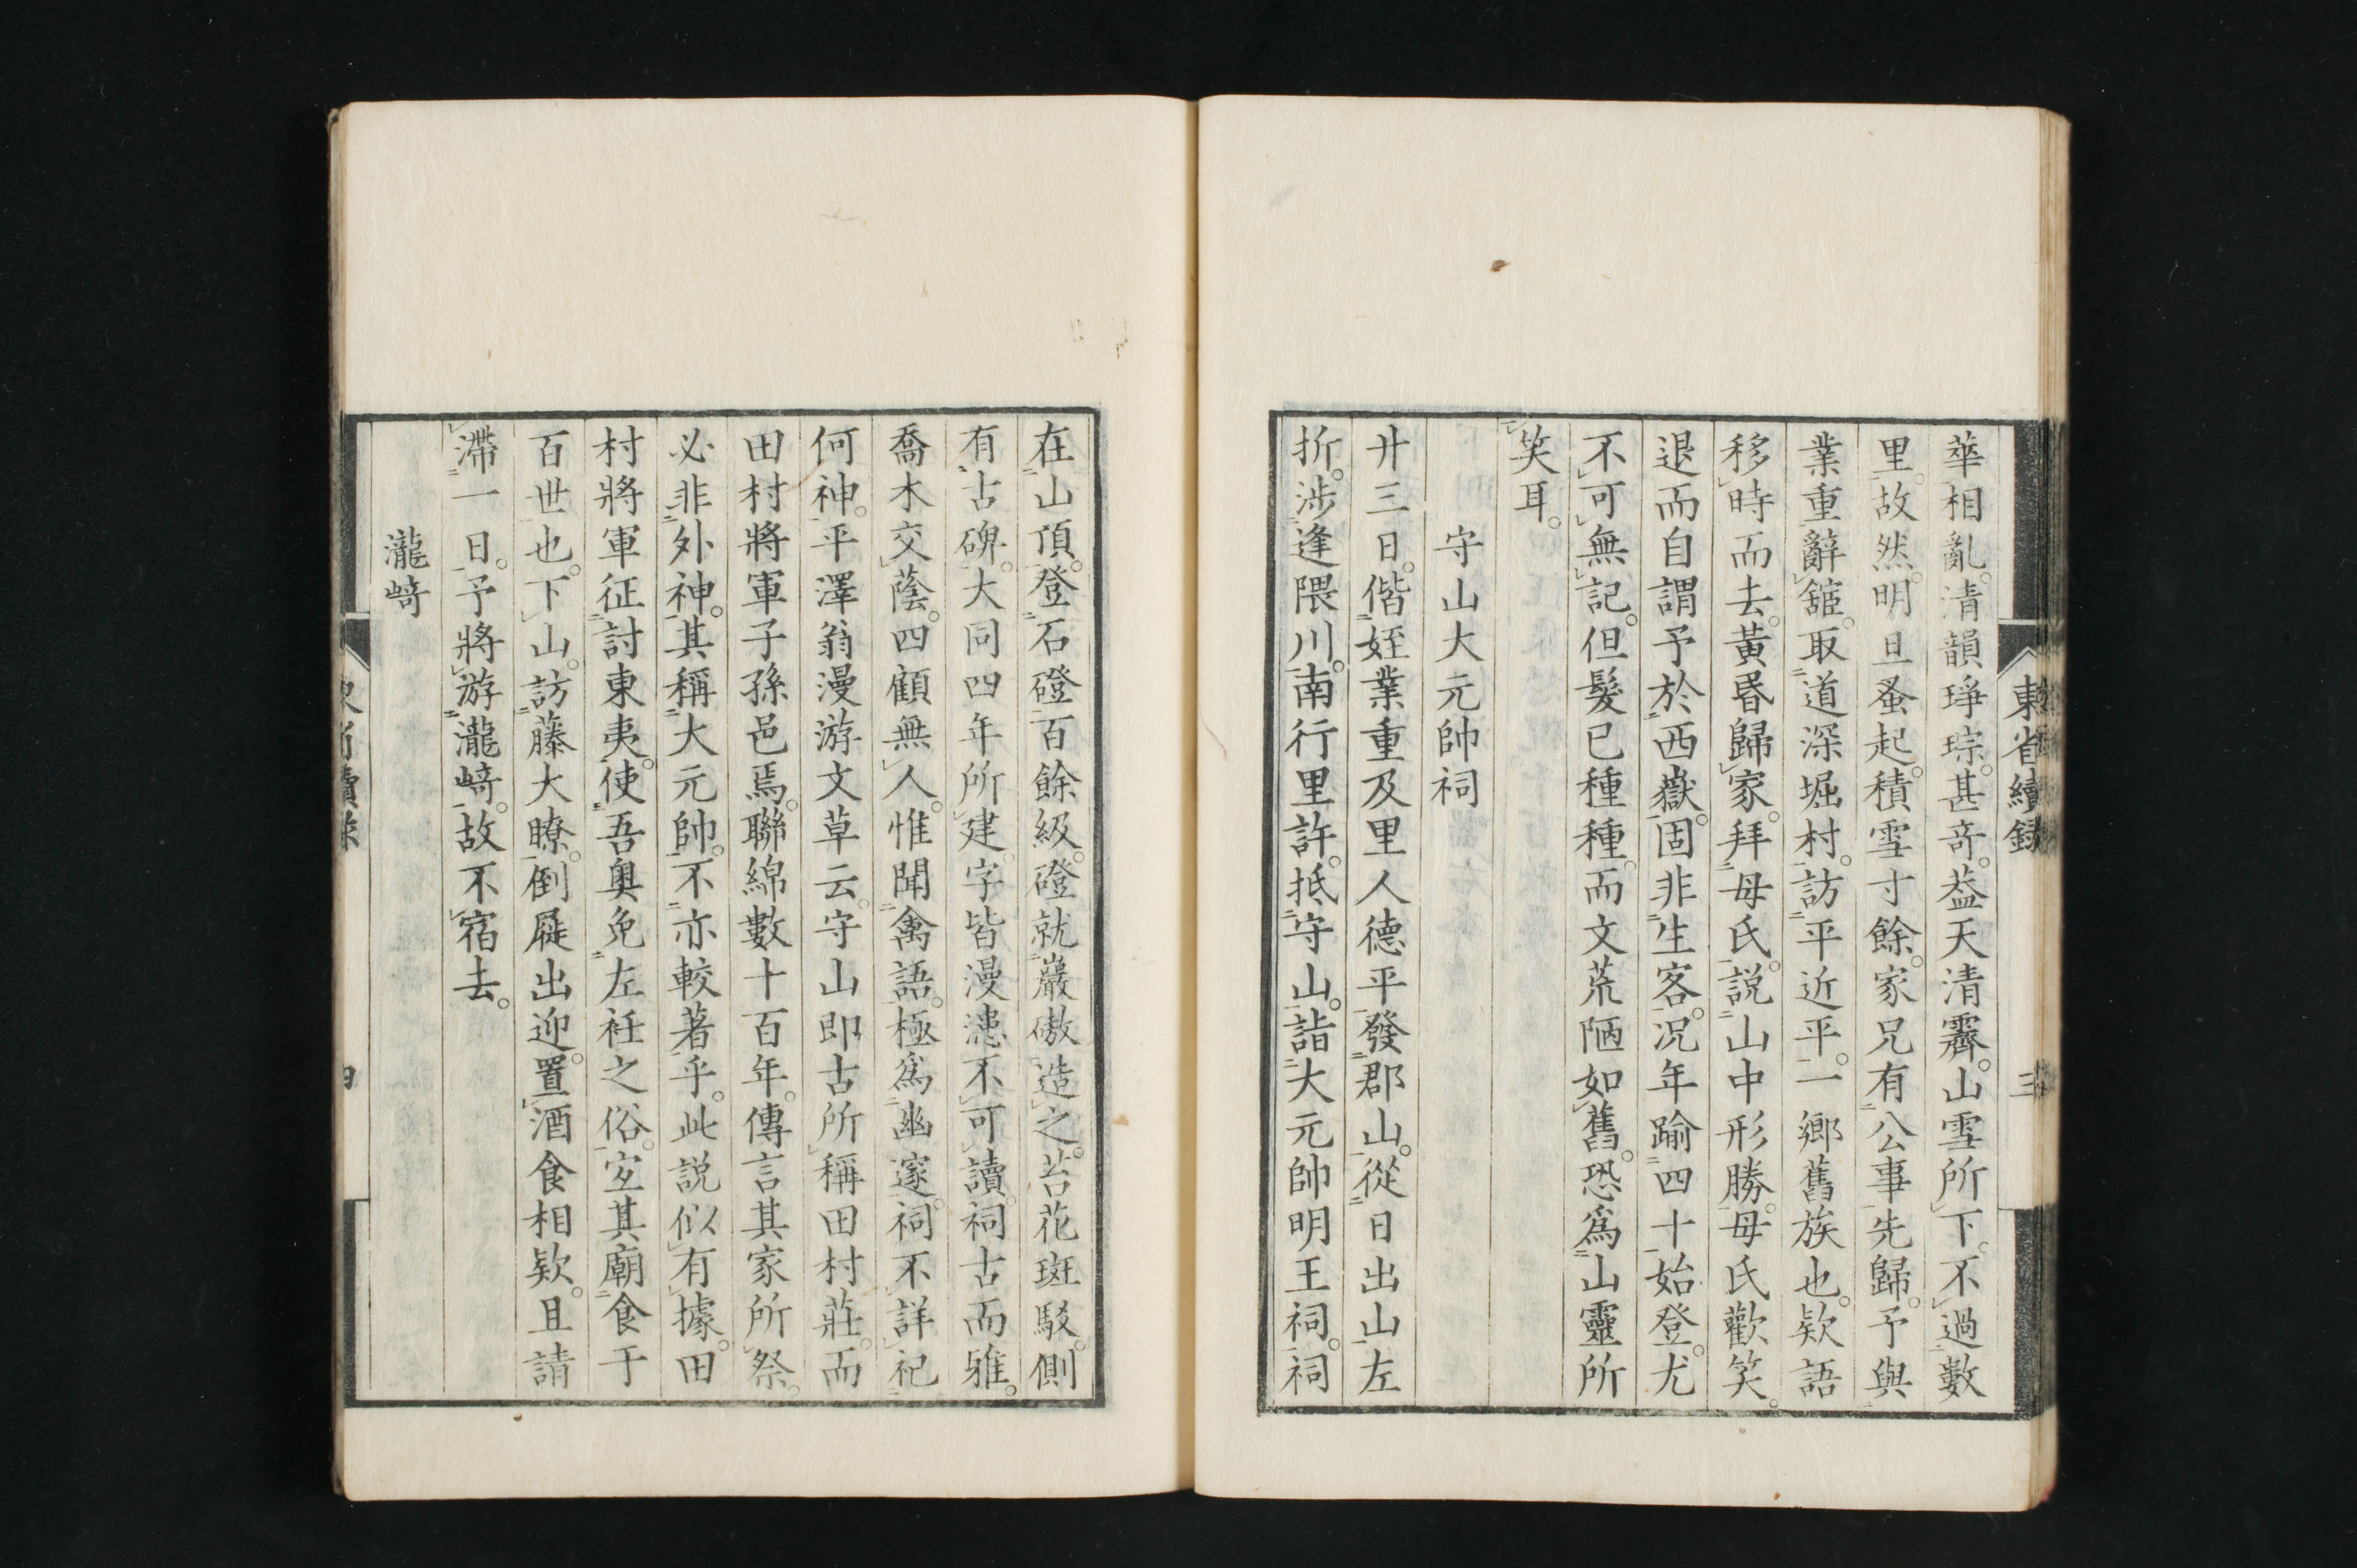 華相亂。清韻琤琮。甚奇。葢天清霽。山雪所下。不過數
里。故然。明旦蚤起。積雪寸餘。家兄有公事先歸。予與
業重辭舘。取道深堀村。訪平近平。一鄉舊族也。欵語
移時而去。黃昏歸家。拜母氏。説山中形勝。母氏歡笑。
退而自謂予於西嶽。固非生客。況年踰四十始登。尤
不可無記。但髮已種種。而文荒陋如舊。恐爲山靈所
笑耳。
守山大元帥祠
廾三日。偕姪業重及里人德平發郡山。從日出山左
折。涉逢隈川。南行里許。抵守山。詣大元帥明王祠。祠
東省續録
三
在山頂。登石磴百餘級。磴就巖磝造之。苔花斑駁。側
有古碑。大同四年所建。字皆漫漶不可讀。祠古而雅。
喬木交蔭。四顧無人。惟聞禽語。極爲幽邃。祠不詳祀
何神。平澤翁漫游文草云。守山即古所稱田村莊。而
田村將軍子孫邑焉。聯綿數十百年。傳言其家所祭。
必非外神。其稱大元帥。不亦較著乎。此説似有據。田
村將軍征討東夷。使吾奥免左衽之俗。宐其廟食于
百世也。下山。訪藤大瞭。倒屣出迎。置酒食相欵。且請
滯一日。予將游瀧﨑。故不宿去。
瀧﨑
四